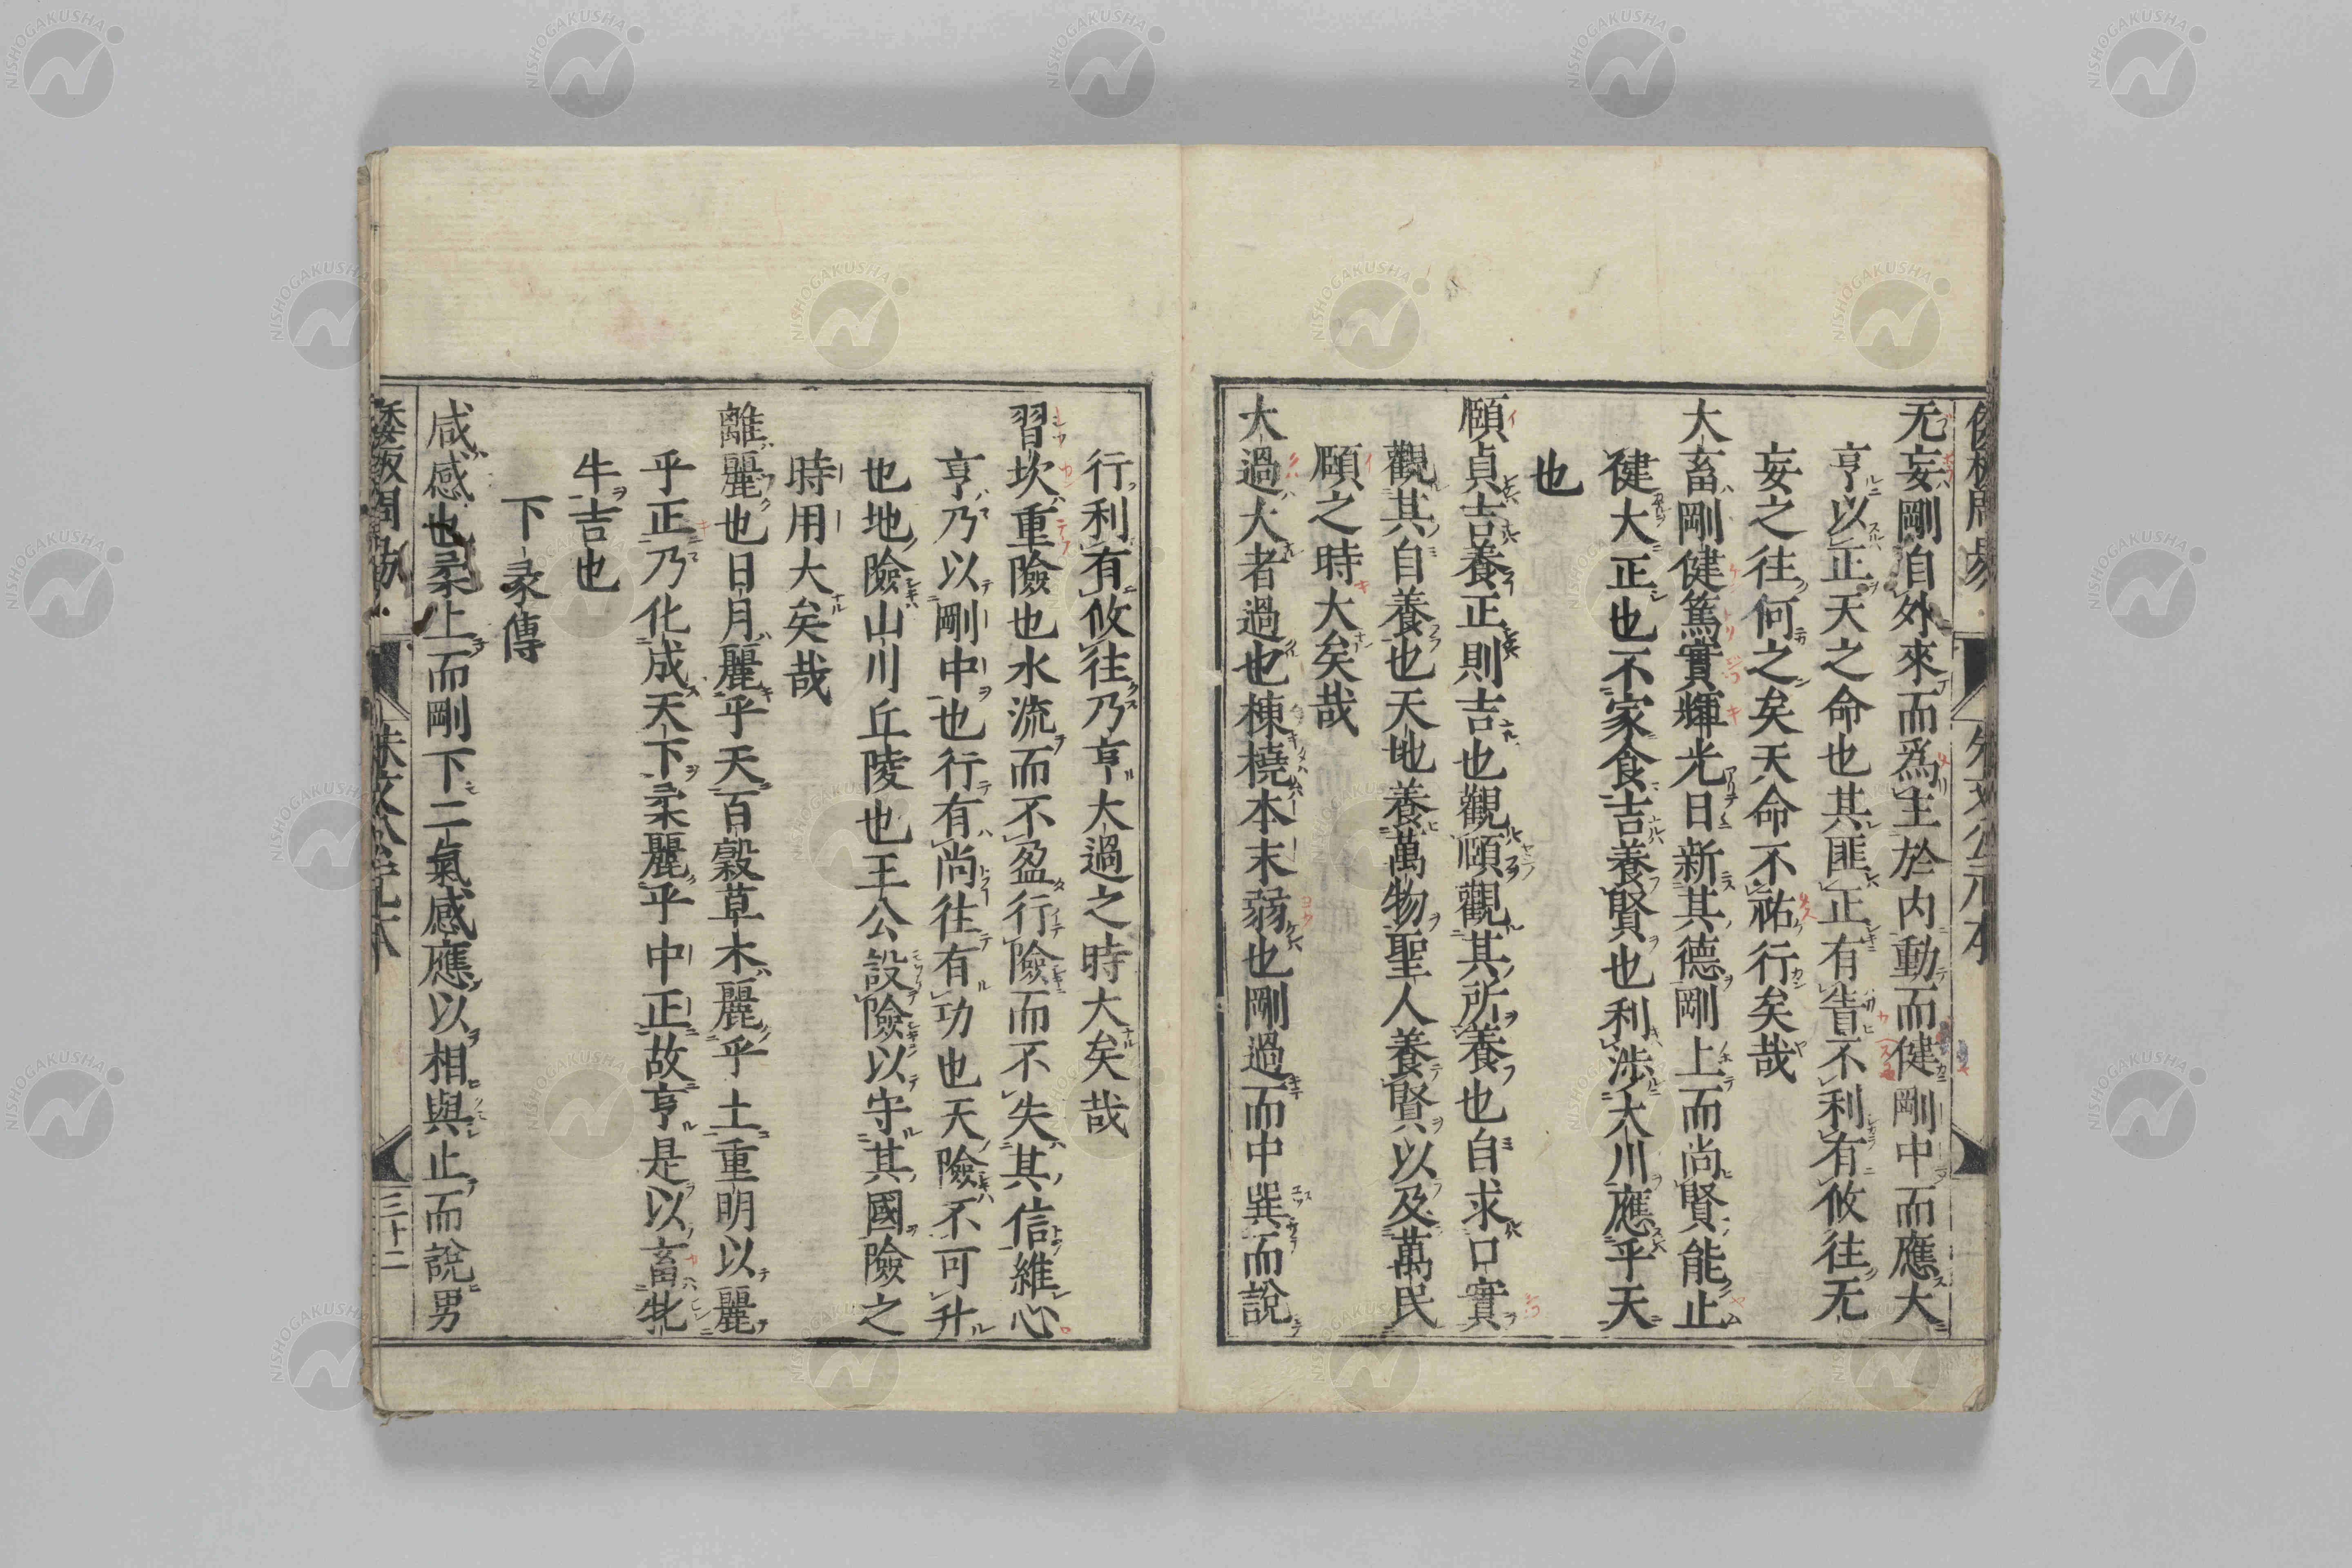 无妄剛自外來而爲主於内動而健剛中而應大
亨以正天之命也其匪正有眚不利有攸往无
妄之往何之矣天命不祐行矣哉
大畜剛健篤實輝光日新其德剛上而尚賢能止
健大正也不家食吉養賢也利涉大川應乎天
也
頤貞吉養正則吉也觀頤觀其所養也自求口實
觀其自養也天地養萬物聖人養賢以及萬民
頤之時大矣哉
大過大者過也棟橈本末弱也剛過而中巽而說
行利有攸往乃亨大過之時大矣哉
習坎重險也水流而不盈行險而不失其信維心
亨乃以剛中也行有尚往有功也天險不可升
也地險山川丘陵也王公設險以守其國險之
時用大矣哉
離麗也日月麗乎天百穀草木麗乎土重明以麗
乎正乃化成天下柔麗乎中正故亨是以畜牝
牛吉也
下彖傳
咸感也柔上而剛下二氣感應以相與止而說男
三十二
NISHOGAKUSHA